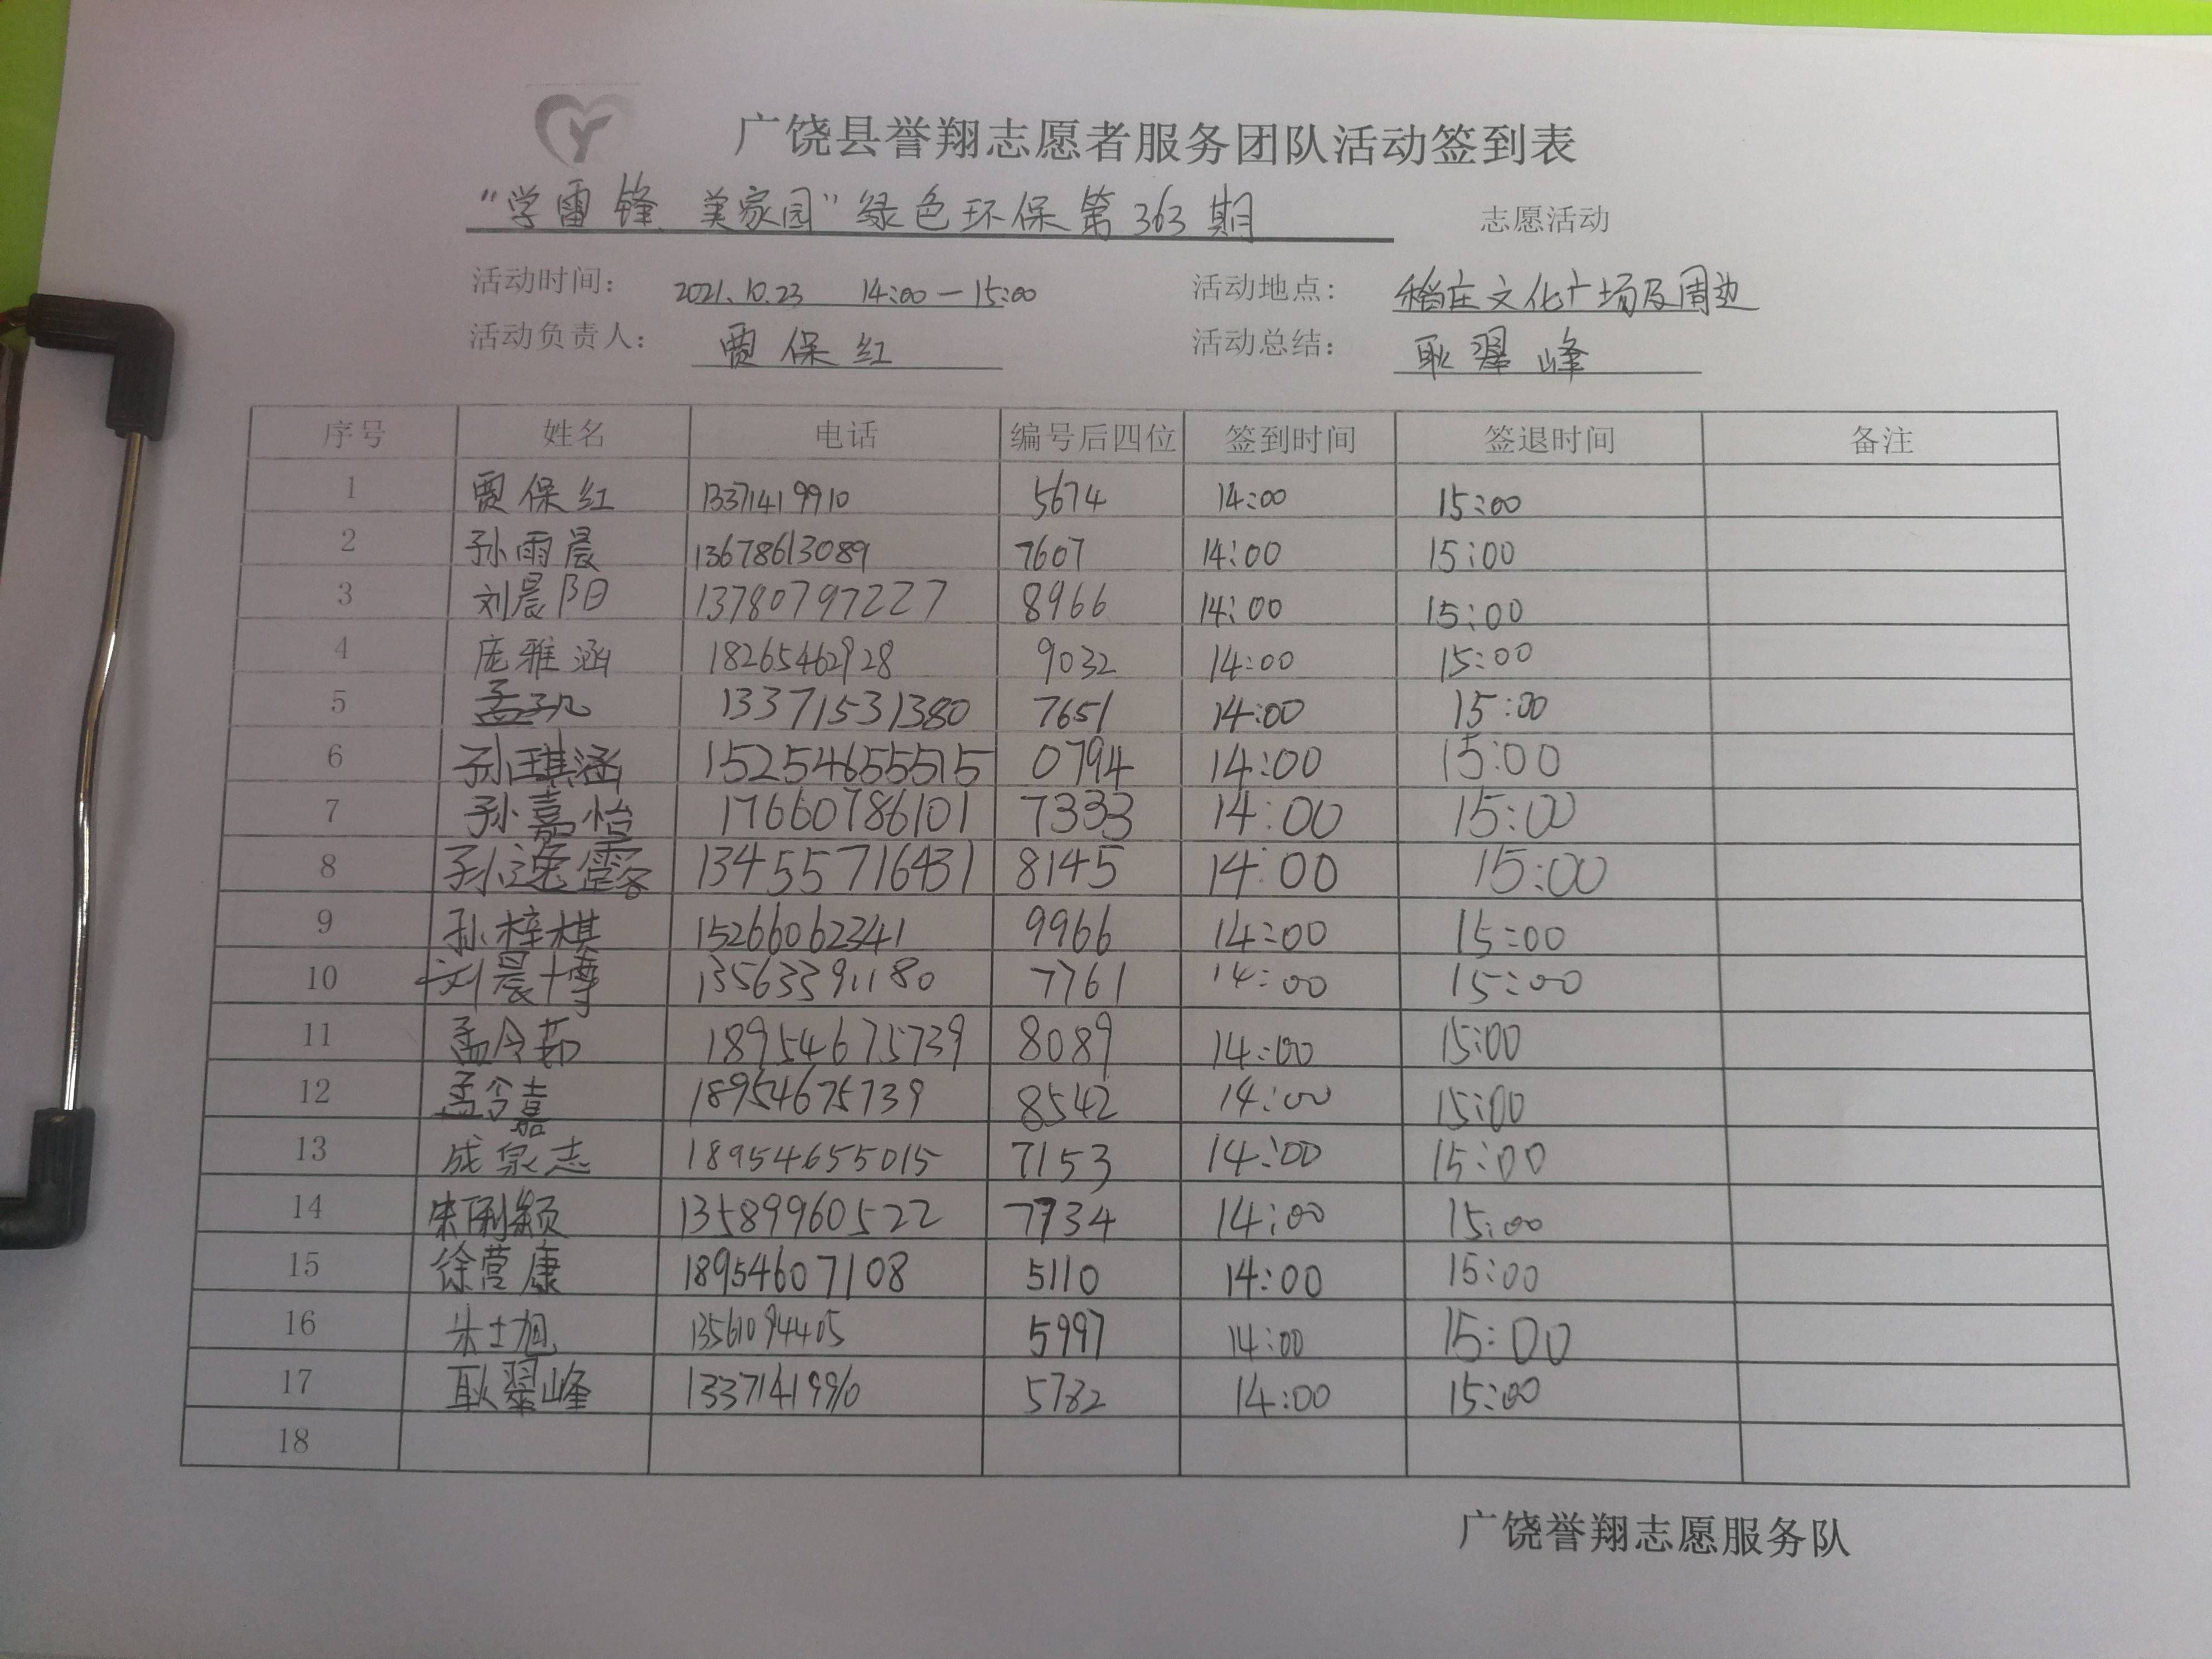 广饶县誉翔志愿者服务团队活动签到表
"学雷锋、美家园"绿色环保第363期 志愿活动
活动时间: 2021.10.23 14:00—15:00 活动地点: 稻庄文化广场及周边
活动负责人: 贾保红 活动总结: 耿翠峰
序号 姓名 电话 编号后四位 签到时间 签退时间 备注
1 贾保红 13371419910 5674 14:00 15:00
2 孙雨晨 13678613089 7607 14:00 15:00
3 刘晨阳 13780797227 8966 14:00 15:00
4 庞雅涵 18265462928 9032 14:00 15:00
5 孟凯 13371531380 7651 14:00 15:00
6 孙琪涵 15254655515 0794 14:00 15:00
7 孙嘉怡 17660786101 7333 14:00 15:00
8 孙逸 13455716431 8145 14:00 15:00
9 孙梓棋 15266062341 9966 14:00 15:00
10 刘晨博 13563391180 7761 14:00 15:00
11 孟令茹 18954675739 8089 14:00 15:00
12 孟令嘉 18954675739 8542 14:00 15:00
13 成泉志 18954655015 7153 14:00 15:00
14 朱俐颖 13589960522 7734 14:00 15:00
15 徐营康 18954607108 5110 14:00 15:00
16 朱士旭 13561094405 5997 14:00 15:00
17 耿翠峰 13371419910 5782 14:00 15:00
18
广饶誉翔志愿服务队